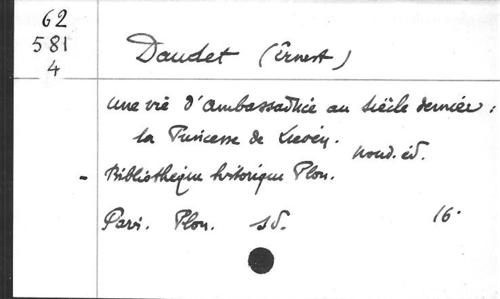 62
581
4
Daudet (Ernest)
une vie d'ambassadrice au siècle dernier :
la Princesse de Lieven.
nouv. éd.
- Bibliothèque historique Plon.
Paris. Plon. sd. 16°